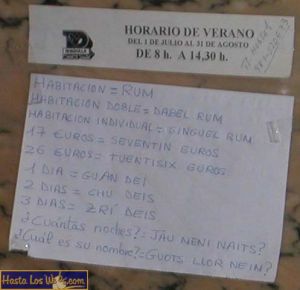 HORARIO DE VERANO
DEL 1 DE JULIO AL 31 DE AGOSTO
DE 8 h. A 14,30 h.
HABITACION = RUM
HABITACION DOBLE = DABEL RUM
HABITACION INDIVIDUAL = SINGUEL RUM
17 EUROS = SEVENTIN EUROS
26 EUROS = TUENTISIX EUROS
1 DIA = GUAN DEI
2 DIAS = CHU DEIS
3 DIAS = ZRÍ DEIS
¿Cuántas noches? = JAU MENI NAITS?
¿Cuál es su nombre? = GUOTS LLOR NEIM?
Hasta Los Webs.com